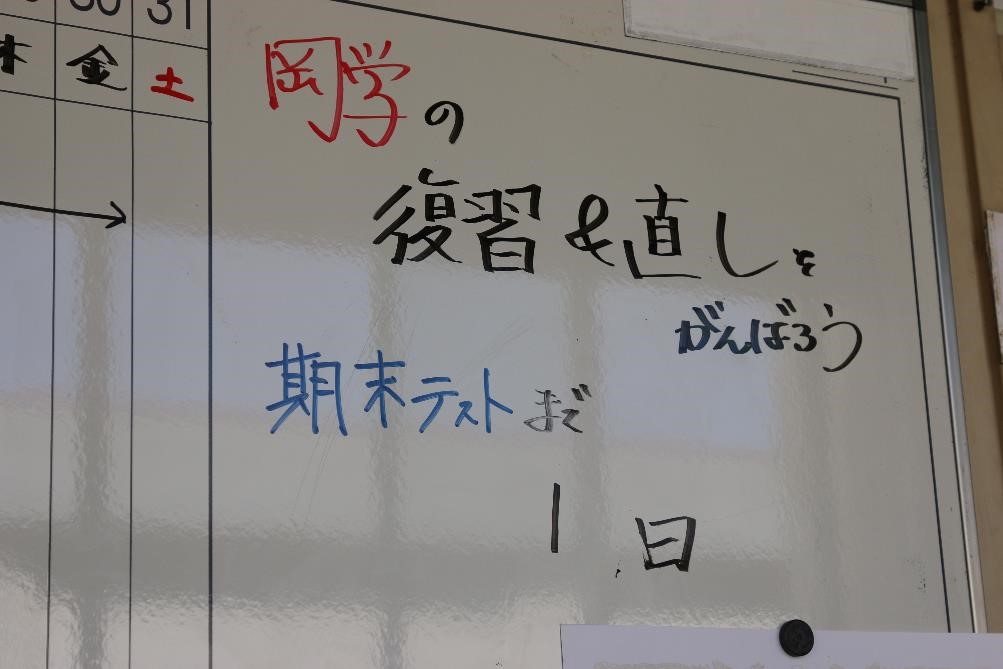 30 31
木 金 土
岡学の
復習&直しを
がんばろう
期末テストまで
1日